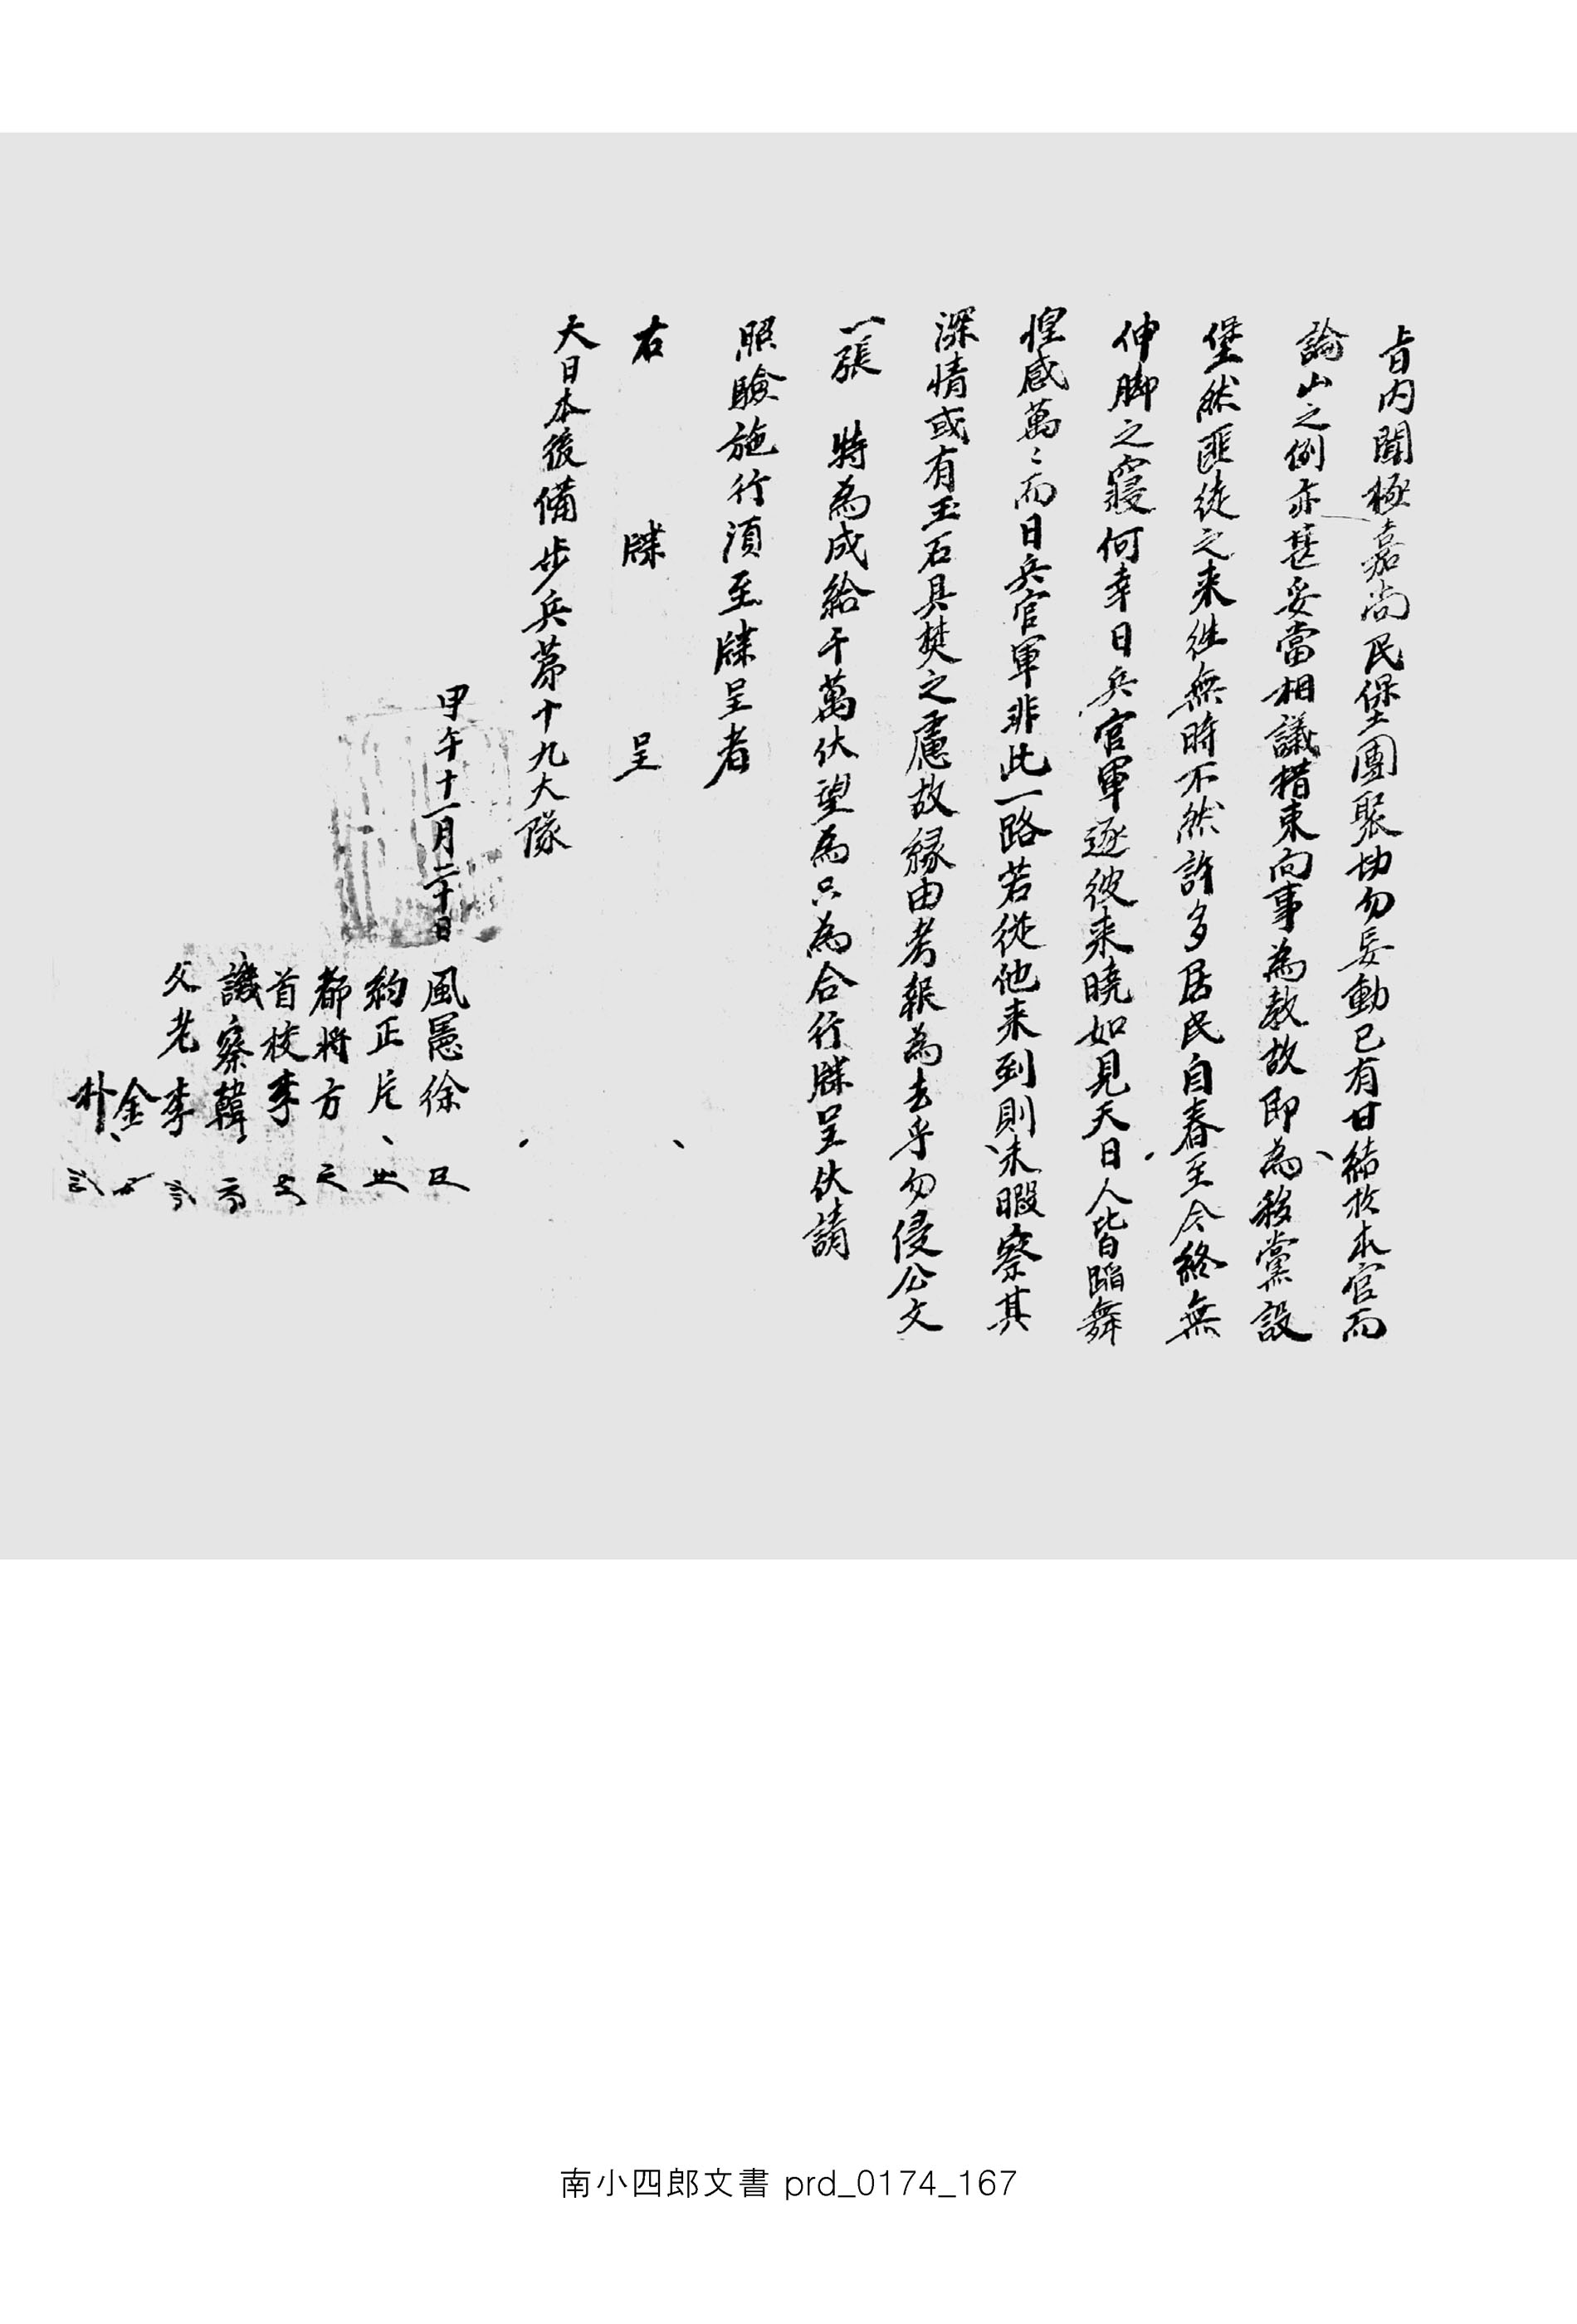 旨內聞極嘉尚民堡團聚切勿妄動已有甘結於本官而
論山之例亦甚妥當相議措束向事為教故即為移黨設
堡然匪徒之来徃無時不然許多居民自春至今終無
伸脚之寢何幸日兵官軍逐彼来曉如見天日人皆蹈舞
惶感萬〻而日兵官軍非此一路若從他来到則未暇察其
深情或有玉石具焚之慮故緣由考報為去乎勿侵公文
一張 特為成給千萬伏望為只為合行牒呈伏請
照驗施行湏至牒呈者
右 牒 呈
大日本後備步兵苐十九大隊
甲午十一月二十日 風憲徐
約正片
都將方
首校李
譏察韓
父老李
金
朴
南小四郎文書 prd_0174_167